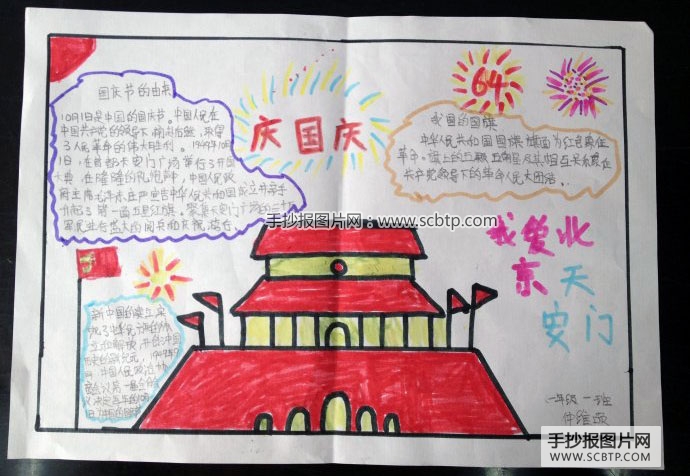 国庆节的由来
10月1日是中国的国庆节。中国人民在
中国共产党的领导下前仆后继,取得
了人民革命的伟大胜利。1949年10月
1日,在首都天安门广场举行了开国
大典,在隆隆的礼炮声中,中国人民政
府主席毛泽东庄严宣告中华人民共和国成立并亲手
升起了第一面五星红旗。聚集天安门广场的三十
军民进行盛大的阅兵和庆祝游行。
庆国庆
64
我国的国旗
中华人民共和国国旗旗面为红色象征
革命。旗上的五颗五角星及其相互关系象征
共产党领导下的革命人民大团结。
手抄报图片网:www.scbtp.com
我爱北
京天
安门
新中国的成立,实
1949年
中国人民政治协
一年级一班
手抄报图片网
WWW.SCBTP.COM